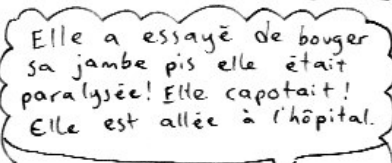 Elle a essayé de bouger
sa jambe pis elle était
paralysée! Elle capotait!
Elle est allée à l'hôpital.